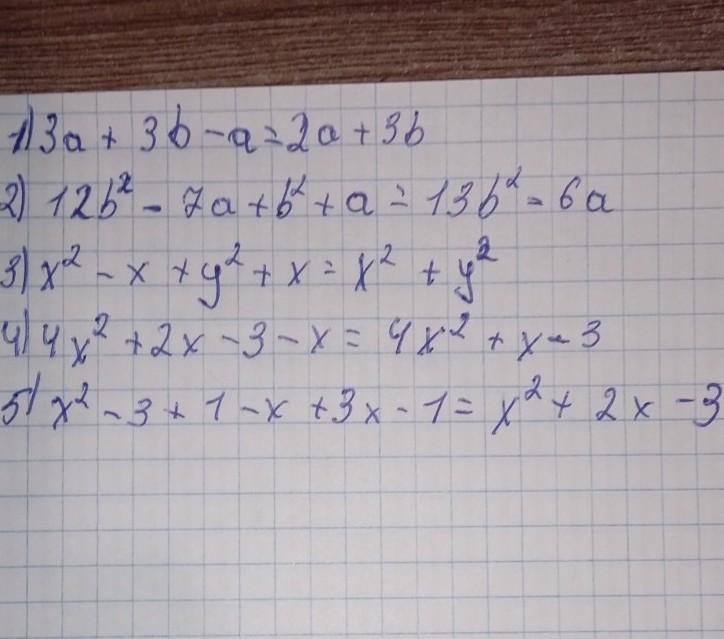 1) 3a + 3b - a = 2a + 3b
2) 12b² - 7a + b² + a = 13b² - 6a
3) x² - x + y² + x = x² + y²
4) 4x² + 2x - 3 - x = 4x² + x - 3
5) x² - 3 + 1 - x + 3x - 1 = x² + 2x - 3